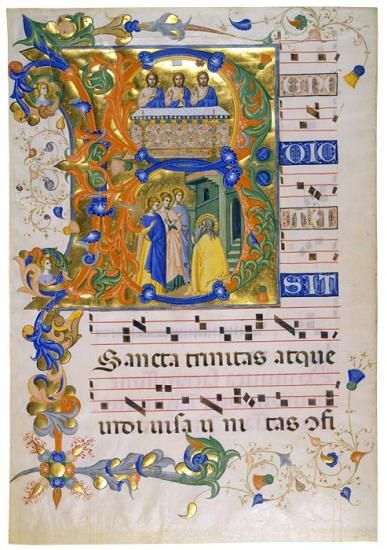 DIC
SIT
Sancta trinitas atque
indi uisa u ni tas ꝯfi